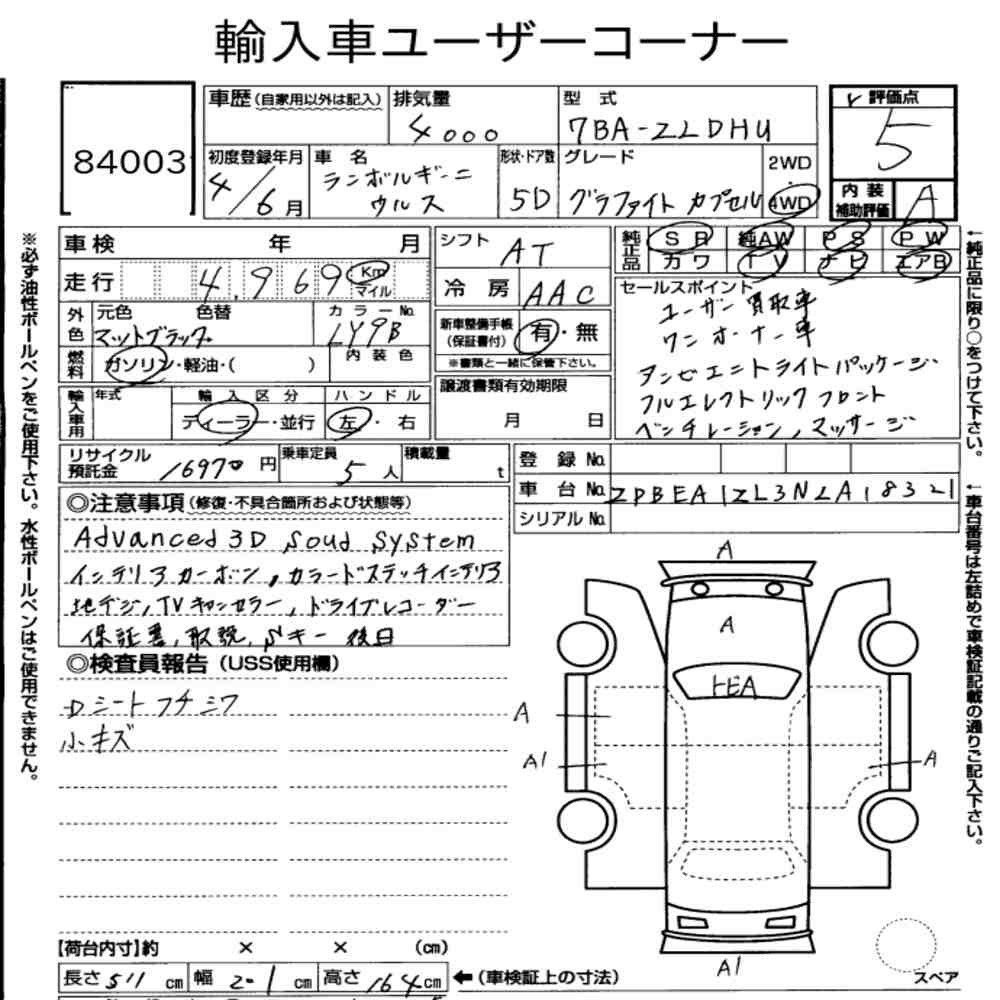 輸入車ユーザーコーナー
84003
車歴(自家用以外は記入) 排気量 型式
4000 7BA-ZLDHU
評価点
5
初度登録年月 車名 形状・ドア数 グレード 2WD
4/6月 ランボルギーニ ウルス 5D グラファイト カプセル 4WD
内装補助評価 A
車検 年 月
シフト AT
純正品 SR 純AW PS PW
カワ TV ナビ エアB
走行 4,969 Km マイル
冷房 AAC
セールスポイント
ユーザー買取車
ワンオーナー車
アンビエントライトパッケージ
フルエレクトリックフロント
ベンチレーション,マッサージ
外色 元色 色替 カラーNo.
マットブラック LY9B
新車整備手帳(保証書付) 有・無
※書類と一緒に保管下さい。
燃料 ガソリン・軽油・( ) 内装色
譲渡書類有効期限
月 日
輸入車用 年式 輸入区分 ハンドル
ディーラー・並行 左・右
リサイクル預託金 16970円 乗車定員 5人 積載量 t
登録No.
車台No. ZPBEA1ZL3NLA18321
シリアルNo.
◎注意事項(修復・不具合箇所および状態等)
Advanced 3D Soud System
インテリアカーボン,カラードステッチインテリア
地デジ,TVキャンセラー,ドライブレコーダー
保証書,取説,Sキー後日
◎検査員報告(USS使用欄)
Dシートフチシワ
小キズ
A
A
トEA
A
A1
A
A1
スペア
【荷台内寸】約 × × (cm)
長さ 511cm 幅 201cm 高さ 164cm ←(車検証上の寸法)
※必ず油性ボールペンをご使用下さい。水性ボールペンはご使用できません。
←純正品に限り○をつけて下さい。
←車台番号は左詰めで車検証記載の通りご記入下さい。